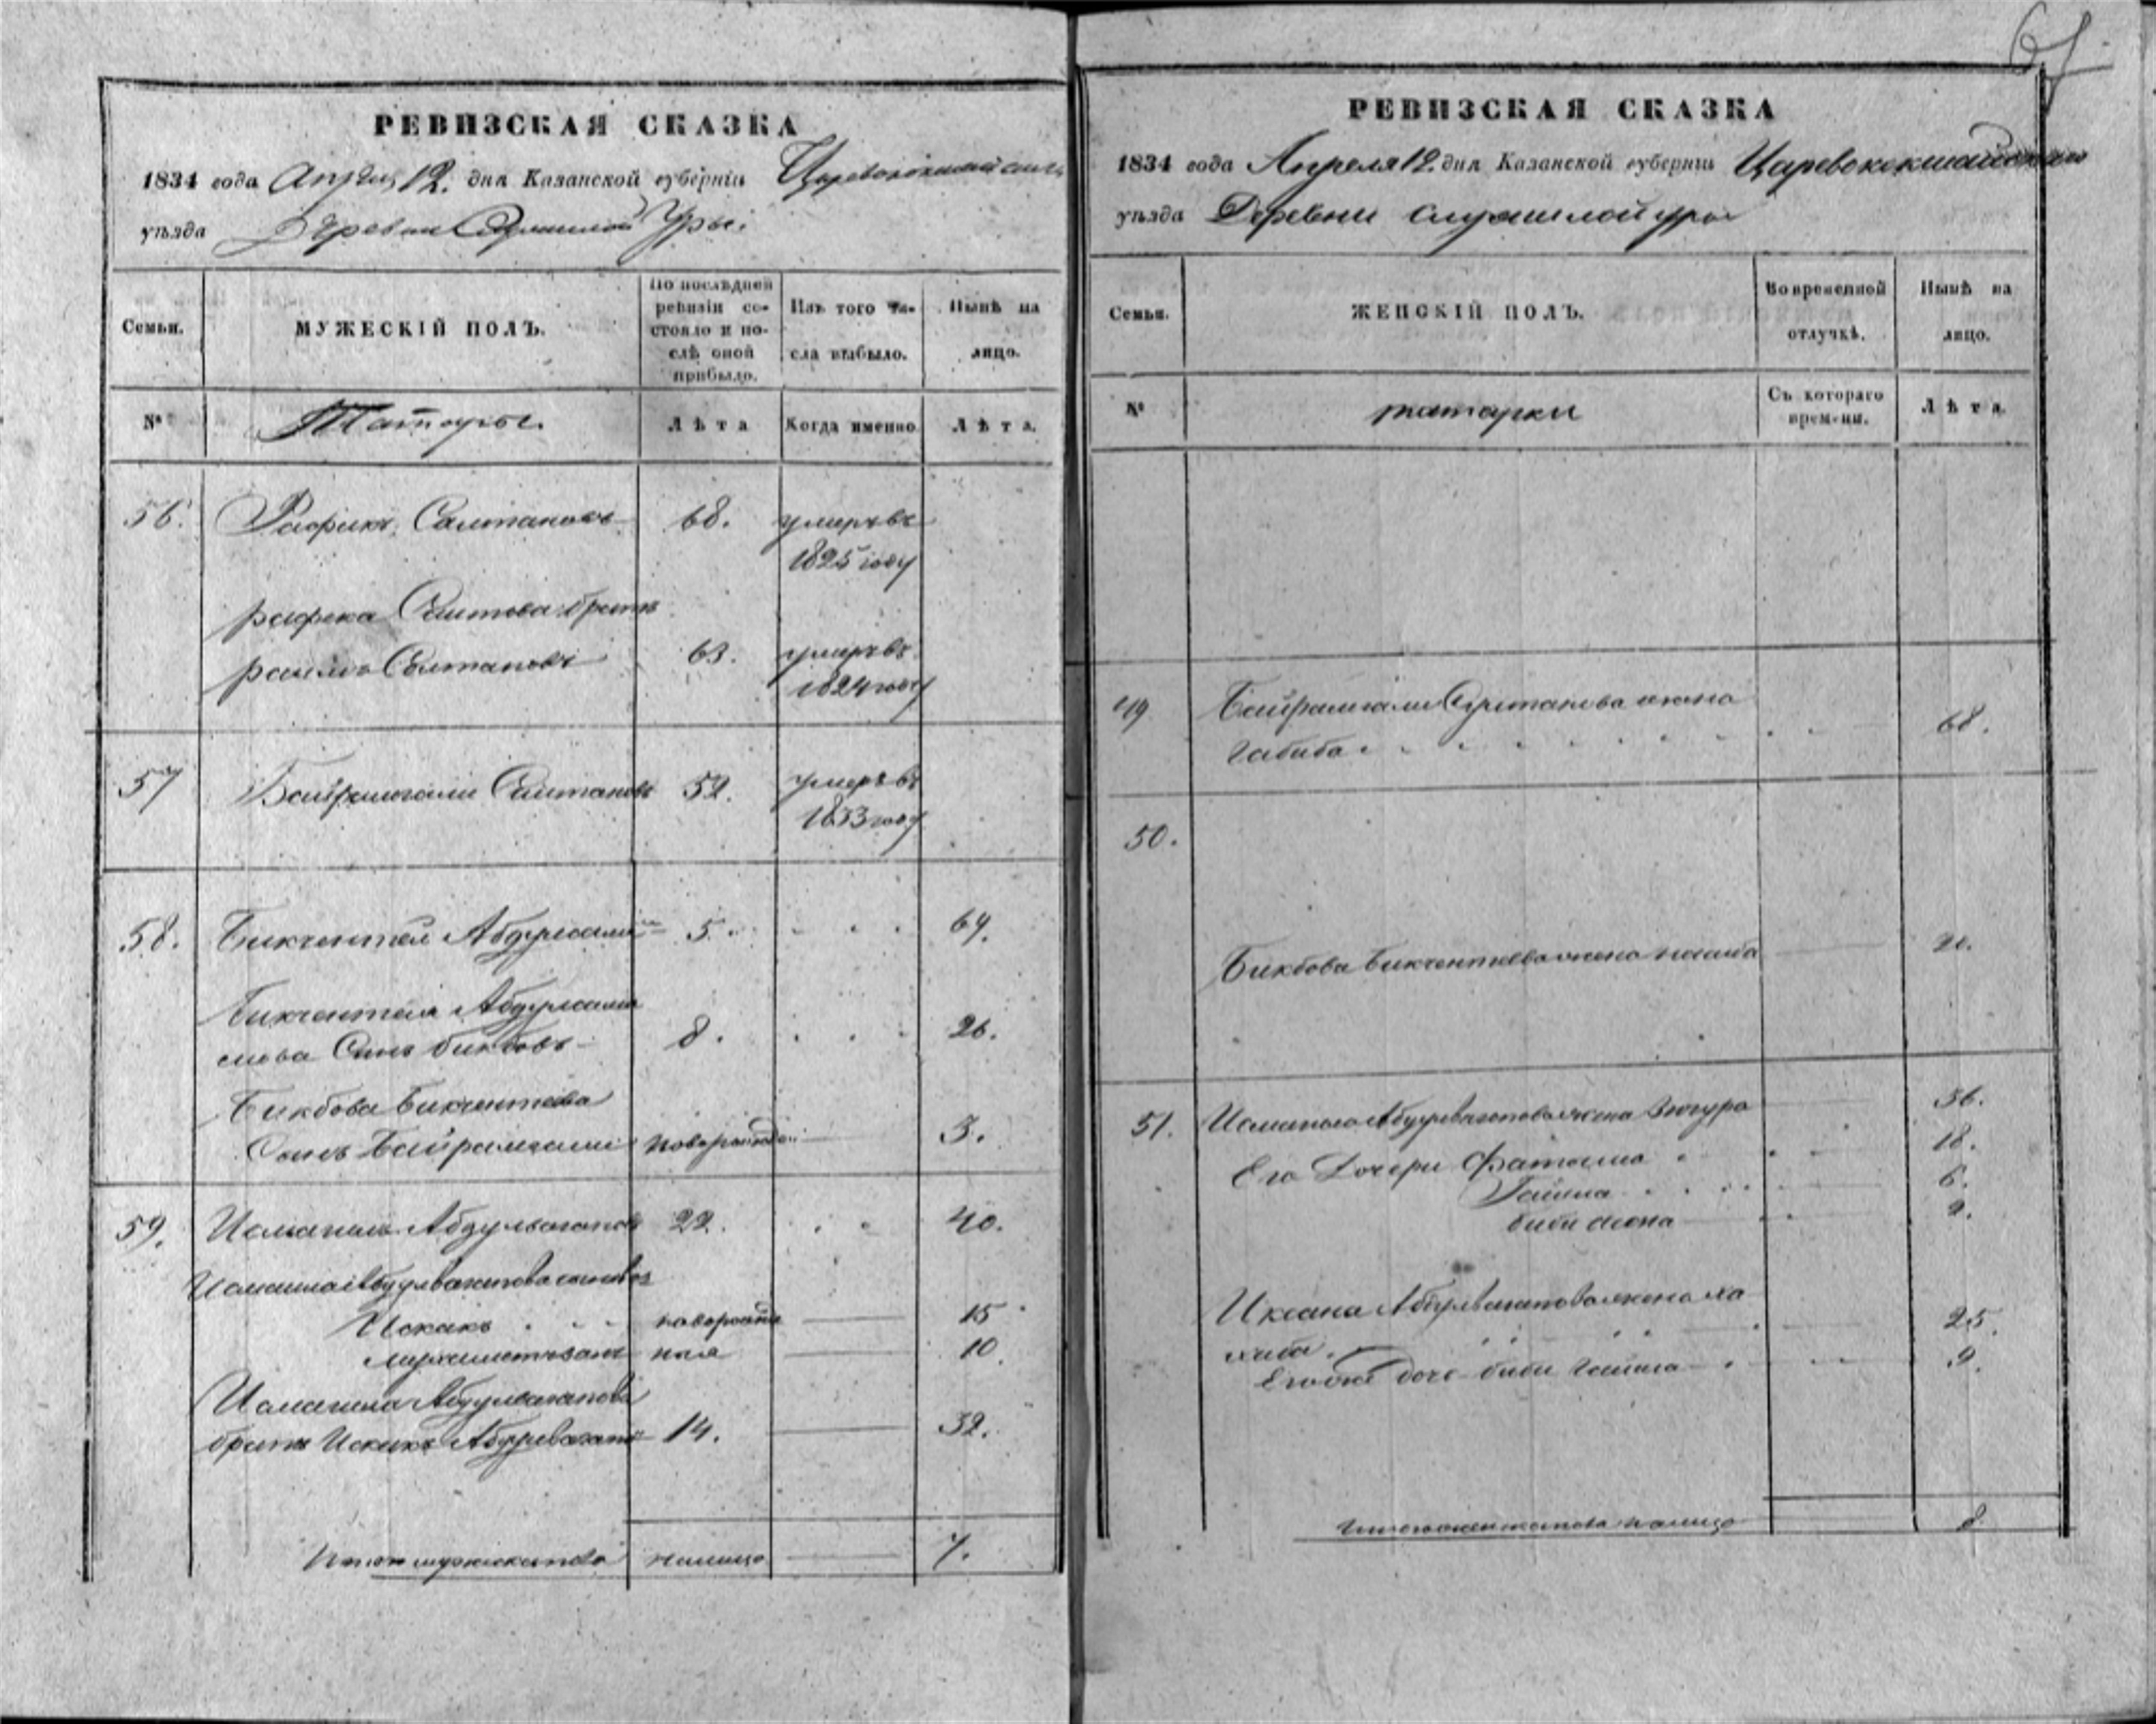 67
РЕВИЗСКАЯ СКАЗКА
1834 года Апреля 12. дня Казанской губерніи Царевококшайскаго
уѣзда Деревни Служилой Уры.
Семьи.
МУЖЕСКІЙ ПОЛЪ.
По послѣдней ревизіи состояло и послѣ оной прибыло.
Изъ того числа выбыло.
Нынѣ на лицо.
№
Татары.
Лѣта
Когда именно.
Лѣта.
56. Рафикъ Салтановъ 68. умеръ въ
1825 году
рафика брать
Салтановъ 63. умеръ въ
1824 году
57 Байрамгали Салтановъ 52. умеръ въ
1833 году
58. Бикчентей 5 . . . 64.
Бикчентея
Сынъ бикбовъ 8. . . . 26.
Бикбова Бикчентеева
Сынъ Байрамгали новорожде 3.
59. Исмаилъ Абдулвагаповъ 22. . . 40.
Исмаила Абдулвагапова сыновья
Исхакъ . . . новорожде 15
ные 10.
Исмаила Абдулвагапова
братъ Абдулвагапо 14. 32.
Итого мужеска пола налицо 7.
РЕВИЗСКАЯ СКАЗКА
1834 года Апреля 12. дня Казанской губерніи Царевококшайскаго
уѣзда Деревни Служилой уры
Семьи.
ЖЕНСКІЙ ПОЛЪ.
Во временной отлучкѣ.
Нынѣ на лицо.
№
татарки
Съ котораго времени.
Лѣта.
49 Байрамгали Султанова жена
Габиба . . . . . . . . . 68.
50.
Бикбова Бикчентеева жена 20.
51. Исмаила Абдулвагапова жена Зюгура 36.
Его Дочери Фатыма . . . 18.
Гайша . . . . 6.
биби 2.
Абдулвагапова жена
25.
Его дочь биби Гайша . . . 9.
Итого женска пола налицо 8